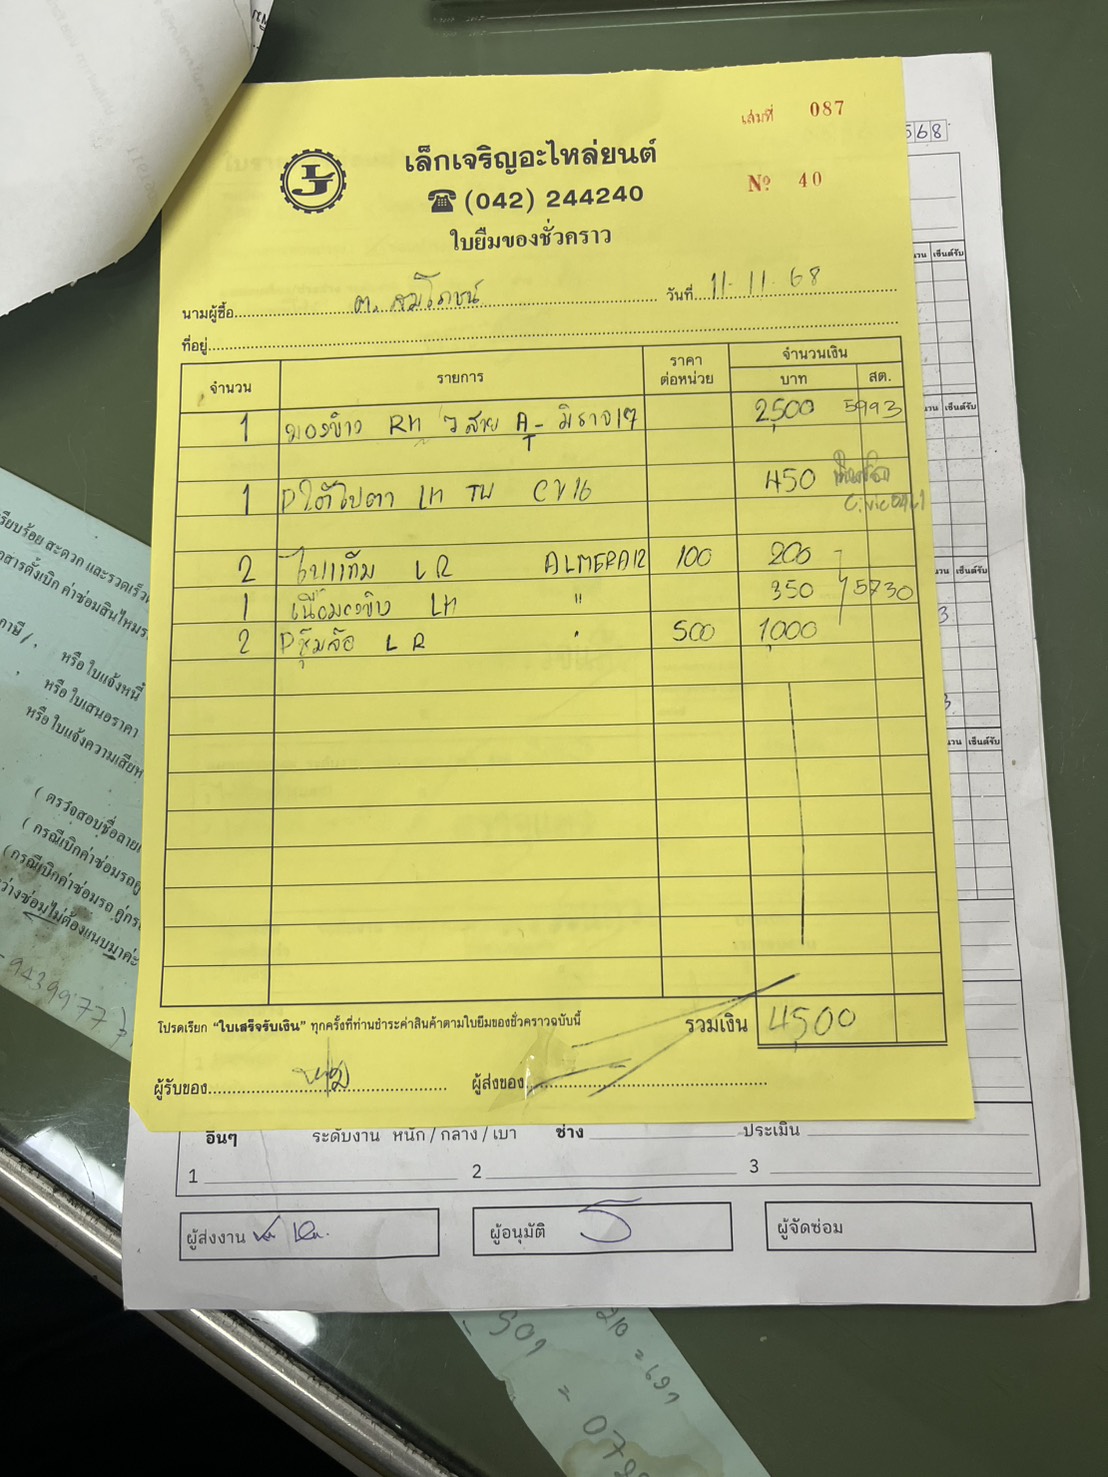 เล่มที่ 087
เล็กเจริญอะไหล่ยนต์
LJ
(042) 244240
Nº 40
ใบยืมของชั่วคราว
568
นามผู้ซื้อ ต. สมโภชน์ วันที่ 11-11-68
ที่อยู่
จำนวน รายการ ราคาต่อหน่วย จำนวนเงิน
บาท สต.
1 มองข้าง RH 7 สาย A/T มิราจ17 2,500 5993
1 Pใต้ไฟตา LH TW CV16 450
Civic
2 ไฟแก้ม LR ALMERA12 100 200
1 LH " 350 5730
2 Pซุ้มล้อ LR " 500 1,000
โปรดเรียก "ใบเสร็จรับเงิน" ทุกครั้งที่ท่านชำระค่าสินค้าตามใบยืมของชั่วคราวฉบับนี้
รวมเงิน 4,500
ผู้รับของ ผู้ส่งของ
อื่นๆ ระดับงาน หนัก / กลาง / เบา ช่าง ประเมิน
1 2 3
ผู้ส่งงาน ผู้อนุมัติ ผู้จัดซ่อม
เรียบร้อย สะดวก และรวดเร็ว
หรือ ใบแจ้งหนี้
หรือ ใบเสนอราคา
หรือ ใบแจ้งความเสียห
( ตรวจสอบชื่อลาย
( กรณีเบิกค่าซ่อมรถ
( กรณีเบิกค่าซ่อมรถ คู่กร
ว่างซ่อมไม่ต้องแนบมาค่ะ
9439977
210 = 691
509
= 072